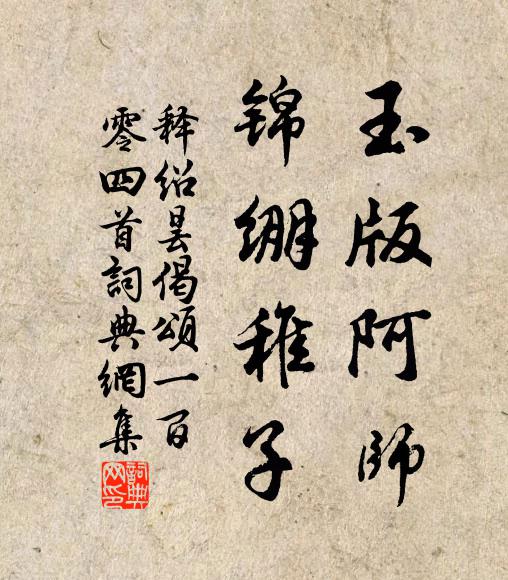 玉版阿师
锦绷稚子
释绍昙偈頌一百
零四首詞典網集
詞典网印